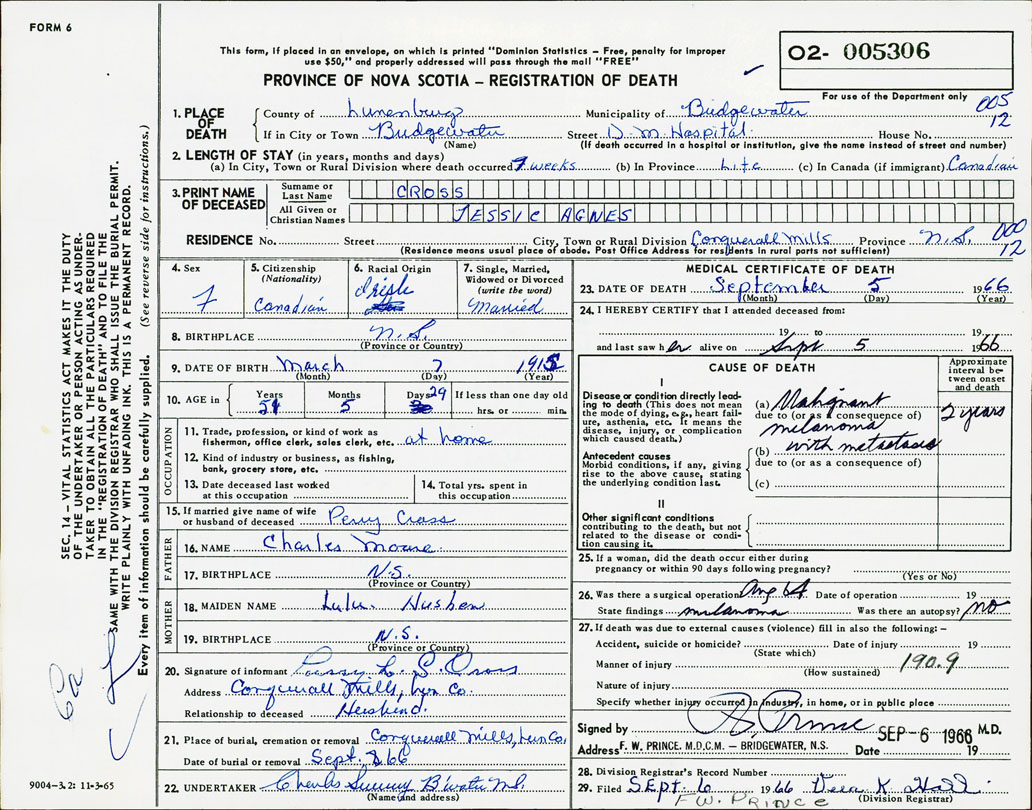 FORM 6
This form, if placed in an envelope, on which is printed "Dominion Statistics – Free, penalty for improper
use $50," and properly addressed will pass through the mail "FREE"
O2- 005306
PROVINCE OF NOVA SCOTIA – REGISTRATION OF DEATH
For use of the Department only
005
12
1. PLACE OF DEATH
County of Lunenburg Municipality of Bridgewater
If in City or Town Bridgewater Street D. M. Hospital House No.
(Name) (If death occurred in a hospital or institution, give the name instead of street and number)
2. LENGTH OF STAY (in years, months and days)
(a) In City, Town or Rural Division where death occurred 7 weeks (b) In Province Life (c) In Canada (if immigrant) Canadian
3. PRINT NAME OF DECEASED
Surname or Last Name CROSS
All Given or Christian Names JESSIE AGNES
RESIDENCE No. Street City, Town or Rural Division Conquerall Mills Province N.S.
000
12
(Residence means usual place of abode. Post Office Address for residents in rural ports not sufficient)
4. Sex F
5. Citizenship (Nationality) Canadian
6. Racial Origin Irish
7. Single, Married, Widowed or Divorced (write the word) Married
8. BIRTHPLACE N.S.
(Province or Country)
9. DATE OF BIRTH March 7
(Month) (Day) (Year)
10. AGE in Years Months 5 Days 29 If less than one day old hrs. or min.
OCCUPATION
11. Trade, profession, or kind of work as
fisherman, office clerk, sales clerk, etc. at home
12. Kind of industry or business, as fishing,
bank, grocery store, etc.
13. Date deceased last worked
at this occupation
14. Total yrs. spent in
this occupation
15. If married give name of wife
or husband of deceased Perry Cross
FATHER
16. NAME Charles
17. BIRTHPLACE N.S.
(Province or Country)
MOTHER
18. MAIDEN NAME Lulu
19. BIRTHPLACE N.S.
(Province or Country)
20. Signature of informant Perry L. S. Cross
Address Conquerall Mills, Lun Co.
Relationship to deceased Husband.
21. Place of burial, cremation or removal Conquerall Mills, Lun Co.
Date of burial or removal Sept. 8 66
22. UNDERTAKER Charles B'water N.S.
(Name and address)
9004–3.2: 11-3-65
MEDICAL CERTIFICATE OF DEATH
23. DATE OF DEATH September 5 1966
(Month) (Day) (Year)
24. I HEREBY CERTIFY that I attended deceased from:
19 to 19
and last saw her alive on Sept 5 1966
CAUSE OF DEATH
Approximate interval between onset and death
I
Disease or condition directly leading
to death (This does not mean
the mode of dying, e.g., heart failure,
asthenia, etc. It means the
disease, injury, or complication
which caused death.)
(a) Malignant
due to (or as a consequence of)
melanoma
with metastasis
2 years
Antecedent causes
Morbid conditions, if any, giving
rise to the above cause, stating
the underlying condition last.
(b)
due to (or as a consequence of)
(c)
II
Other significant conditions
contributing to the death, but not
related to the disease or condition
causing it.
25. If a woman, did the death occur either during
pregnancy or within 90 days following pregnancy?
(Yes or No)
26. Was there a surgical operation Aug 64 Date of operation 19
State findings melanoma Was there an autopsy? no
27. If death was due to external causes (violence) fill in also the following:–
Accident, suicide or homicide? Date of injury 19
(State which)
Manner of injury 190.9
(How sustained)
Nature of injury
Specify whether injury occurred in industry, in home, or in public place
Signed by Prince SEP -6 1966 M.D.
Address F. W. PRINCE. M.D.C.M. – BRIDGEWATER, N.S. Date 19
28. Division Registrar's Record Number
29. Filed Sept. 6 1966
F.W. PRINCE (Division Registrar)
SEC. 14 – VITAL STATISTICS ACT MAKES IT THE DUTY
OF THE UNDERTAKER OR PERSON ACTING AS UNDERTAKER
TO OBTAIN ALL THE PARTICULARS REQUIRED
IN THE "REGISTRATION OF DEATH" AND TO FILE THE
SAME WITH THE DIVISION REGISTRAR WHO SHALL ISSUE THE BURIAL PERMIT.
WRITE PLAINLY WITH UNFADING INK. THIS IS A PERMANENT RECORD.
Every item of information should be carefully supplied. (See reverse side for instructions.)